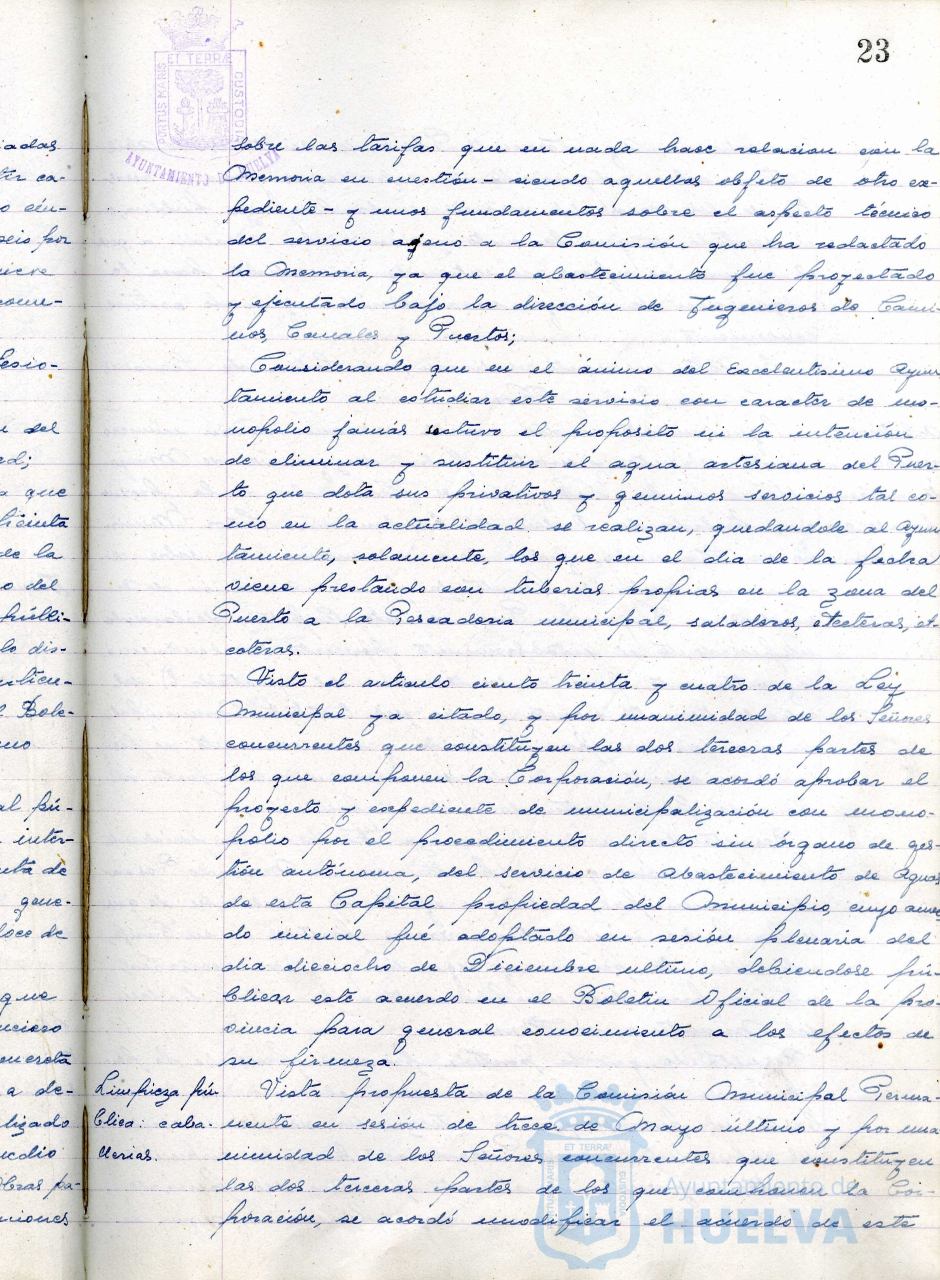 23
PORTUS MARIS ET TERRÆ CUSTODIA
AYUNTAMIENTO DE HUELVA
sobre las tarifas que en nada hace relacion con la
Memoria en cuestión - siendo aquellas objeto de otro ex-
pediente - y unos fundamentos sobre el aspecto técnico
del servicio ageno a la Comisión que ha redactado
la Memoria, ya que el abastecimiento fue proyectado
y ejecutado bajo la dirección de Ingenieros de Cami-
nos, Canales y Puertos;
Considerando que en el ánimo del Excelentisimo Ayun
tamiento al estudiar este servicio con caracter de mo-
nopolio jamás estuvo el proposito ni la intención
de eliminar y sustituir el agua artesiana del Puer-
to que dota sus privativos y genuinos servicios tal co-
mo en la actualidad se realizan, quedandole al Ayun
tamiento, solamente, los que en el dia de la fecha
viene prestando con tuberias propias en la zona del
Puerto a la Pescaderia municipal, saladeros, etcteras, et-
coteras.
Visto el articulo ciento treinta y cuatro de la Ley
Municipal ya citado, y por unanimidad de los Señores
concurrentes que constituyen las dos terceras partes de
los que componen la Corporación, se acordó aprobar el
proyecto y expediente de municipalización con mono-
polio por el procedimiento directo sin órgano de ges-
tión autónoma, del servicio de Abastecimiento de Aguas
de esta Capital propiedad del Municipio, cuyo acuer
do inicial fué adoptado en sesión plenaria del
dia dieciocho de Diciembre ultimo, debiendose pú-
blicar este acuerdo en el Boletin Oficial de la pro-
vincia para general conocimiento a los efectos de
su firmeza.
Limpieza pú-
blica: caba-
llerias.
Vista propuesta de la Comisión Municipal Perma-
nente en sesión de trece de Mayo último y por una
nimidad de los Señores concurrentes que constituyen
las dos terceras partes de los que componen la Cor-
poración, se acordó modificar el acuerdo de este
Ayuntamiento de
HUELVA
iadas
ter ca-
seis por
del
que
de la
o del
lo dis-
Bole-
al pú-
inter-
gene-
que
a de-
lizado